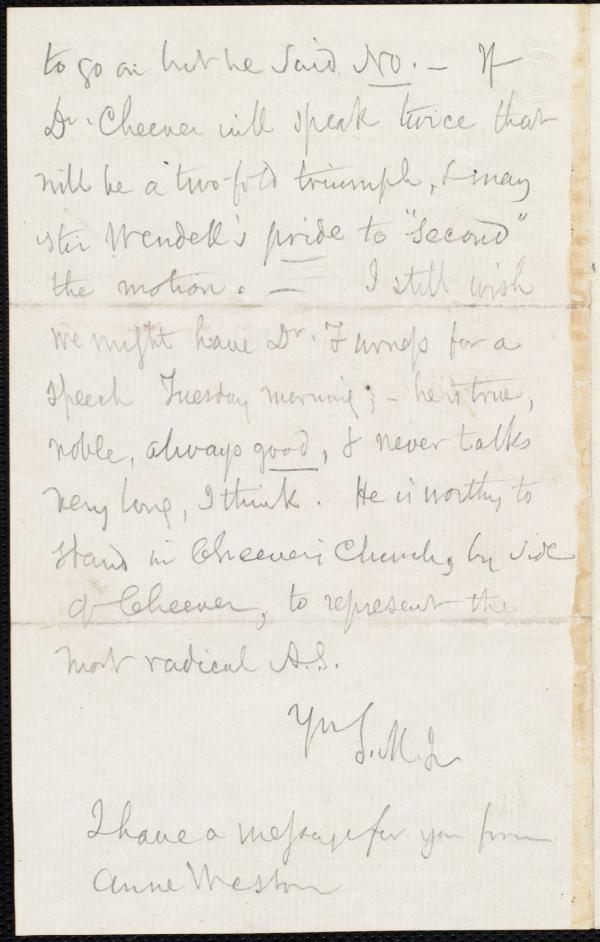 to go on but he said, No. — If
Dr. Cheever will speak twice that
will be a two-fold triumph, & may
stir Wendell's pride to "second"
the motion. — I still wish
we might have Dr. Furness for a
speech Tuesday morning; - he is true,
noble, always good, & never talks
very long, I think. He is worthy to
stand in Cheever's Church, by side
of Cheever, to represent the
most radical A.S.
Yrs S.M. Jr
I have a message for you from
Anne Weston